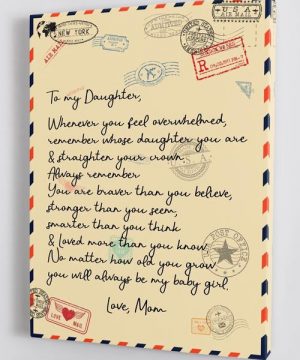 U.S.A
AIR MAIL
NEW YORK
AIR MAIL
R
To my Daughter,
Whenever you feel overwhelmed,
remember whose daughter you are
& straighten your crown.
Always remember
You are braver than you believe,
stronger than you seem,
smarter than you think
& Loved more than you know
No matter how old you grow
you will always be my baby girl.
Love, Mom
U.S.A
POST OFFICE
LOVE MAIL